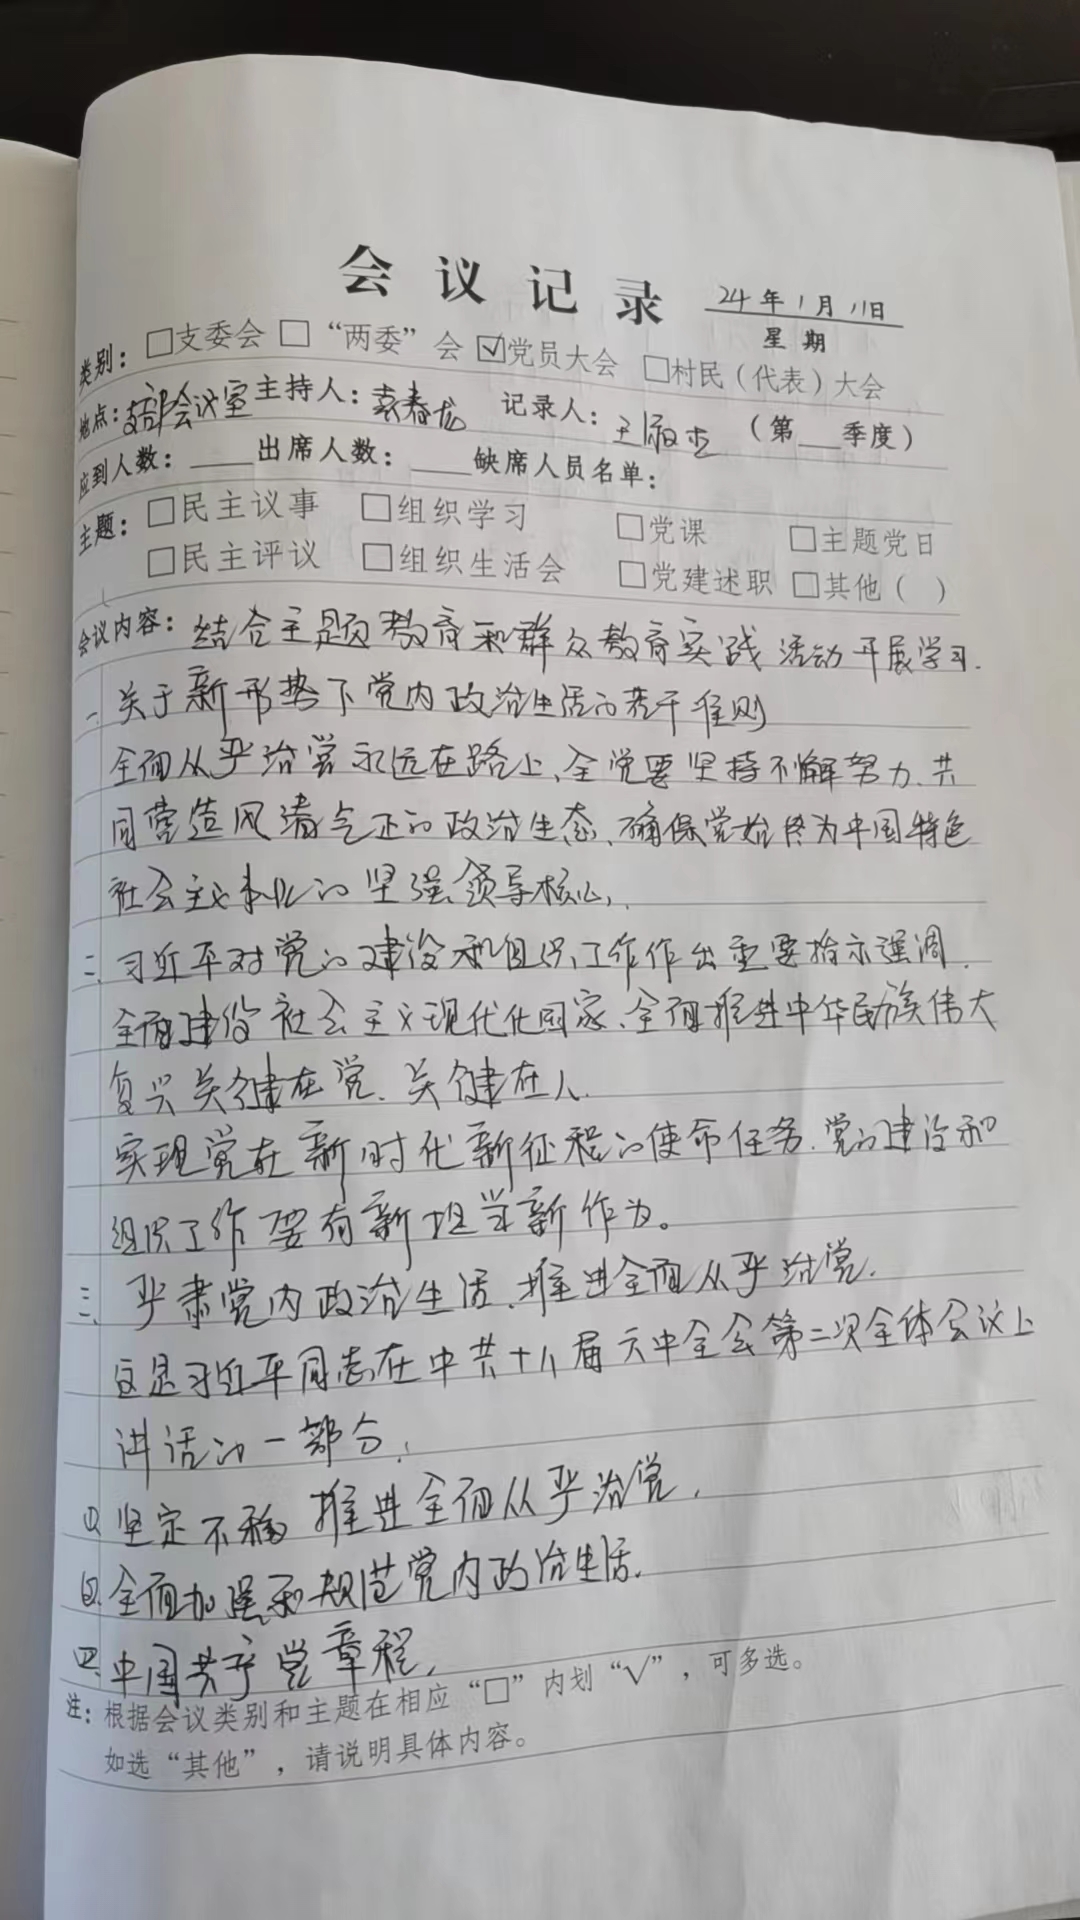 会议记录 24年1月11日
星期
类别：□支委会 □“两委”会 ☑党员大会 □村民（代表）大会
地点：支部会议室 主持人：袁春龙 记录人：王 （第___季度）
应到人数：____出席人数：____缺席人员名单：
主题：□民主议事 □组织学习 □党课 □主题党日
□民主评议 □组织生活会 □党建述职 □其他（ ）
会议内容：结合主题教育和群众教育实践活动开展学习.
一、关于新形势下党内政治生活的若干准则
全面从严治党永远在路上、全党要坚持不懈努力、共
同营造风清气正的政治生态、确保党始终为中国特色
社会主义事业的坚强领导核心，
二、习近平对党的建设和组织工作作出重要指示强调.
全面建设社会主义现代化国家、全面推进中华民族伟大
复兴关键在党、关键在人.
实现党在新时代新征程的使命任务、党的建设和
组织工作要有新担当新作为。
三、严肃党内政治生活、推进全面从严治党.
这是习近平同志在中共十八届六中全会第二次全体会议上
讲话的一部分，
①、坚定不移推进全面从严治党，
②、全面加强和规范党内政治生活.
四、中国共产党章程，
注：根据会议类别和主题在相应“□”内划“√”，可多选。
如选“其他”，请说明具体内容。